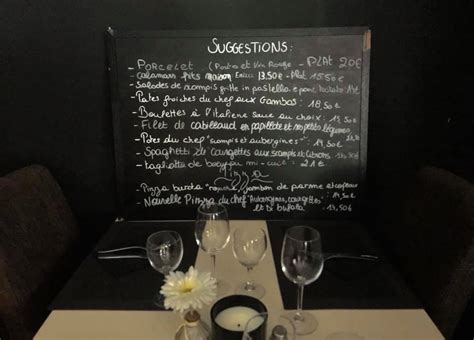 SUGGESTIONS:
- PORCELET (Porto et Vin Rouge - PLAT 20€
- calamars frits maison Entrée 13,50€ - Plat 15,50€
- Salades de scampis grillé in
- Pates fraiches du chef aux Gambas: 18,50€
- Boulettes à l'italiene sauce au choix: 15,50€
- Filet de cabillaud en papillote et ses petits légumes
- Pates du chef "scampis et aubergines":
- Spaghetti de courgettes aux scampis et citrons
- tagliatta de boeuf mi-cuit: 21€
Pizza
- Pizza burata "roquette, jambon de parme et capres
- Nouvelle Pizza du chef "Aubergines, courgettes
et di bufala" 13,50€